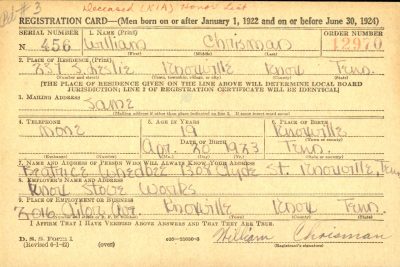 Deceased (KIA) Honor List
Bd # 3
REGISTRATION CARD—(Men born on or after January 1, 1922 and on or before June 30, 1924)
SERIAL NUMBER 1. NAME (Print) ORDER NUMBER
N 456 William Chrisman 12970
(First) (Middle) (Last)
2. PLACE OF RESIDENCE (Print)
837 S. Leslie Knoxville Knox Tenn.
(Number and street) (Town, township, village, or city) (County) (State)
[THE PLACE OF RESIDENCE GIVEN ON THE LINE ABOVE WILL DETERMINE LOCAL BOARD
JURISDICTION; LINE 2 OF REGISTRATION CERTIFICATE WILL BE IDENTICAL]
3. MAILING ADDRESS
Same
[Mailing address if other than place indicated on line 2. If same insert word same]
4. TELEPHONE 5. AGE IN YEARS 6. PLACE OF BIRTH
none 19 Knoxville
DATE OF BIRTH (Town or county)
Apr. 20 1923 Tenn.
(Exchange) (Number) (Mo.) (Day) (Yr.) (State or country)
7. NAME AND ADDRESS OF PERSON WHO WILL ALWAYS KNOW YOUR ADDRESS
Beatrice St. Knoxville, Tenn
8. EMPLOYER'S NAME AND ADDRESS
Knox Stove Works
9. PLACE OF EMPLOYMENT OR BUSINESS
Ave. Knoxville Knox Tenn.
(Number and street or R. F. D. number) (Town) (County) (State)
I AFFIRM THAT I HAVE VERIFIED ABOVE ANSWERS AND THAT THEY ARE TRUE.
D. S. S. Form 1 William Chrisman
(over) (Registrant's signature)